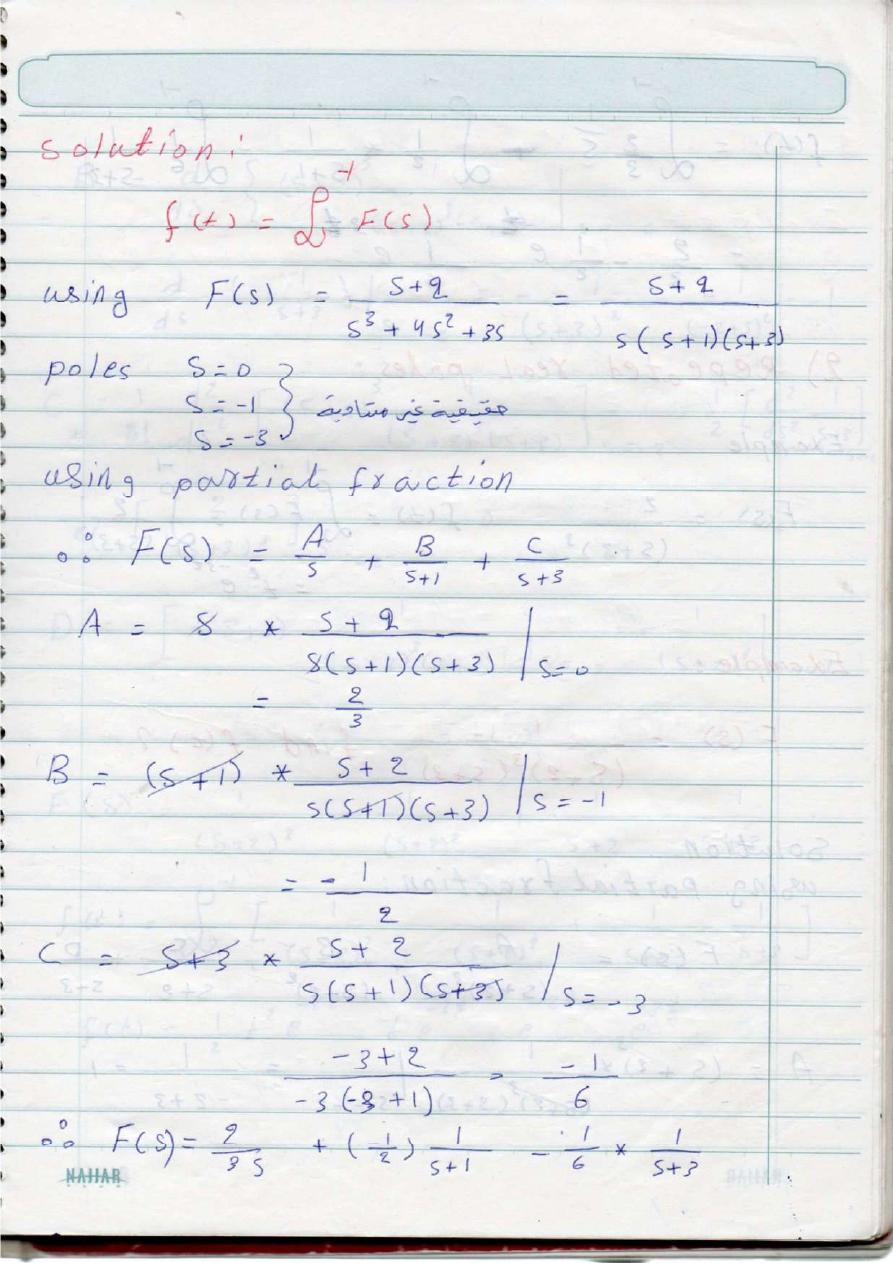 solution:
f(t) = ℒ⁻¹ F(s)
using F(s) = (s+2)/(s³+4s²+3s) = (s+2)/(s(s+1)(s+3))
poles s=0
s=-1 } حقيقية غير متساوية
s=-3
using partial fraction
∴ F(s) = A/s + B/(s+1) + C/(s+3)
A = s * (s+2)/(s(s+1)(s+3)) | s=0
= 2/3
B = (s+1) * (s+2)/(s(s+1)(s+3)) | s=-1
= -1/2
C = s+3 * (s+2)/(s(s+1)(s+3)) | s=-3
(-3+2)/(-3(-3+1)) = -1/6
∴ F(s) = 2/3s + (-1/2) 1/(s+1) - 1/6 * 1/(s+3)
NAJJAR